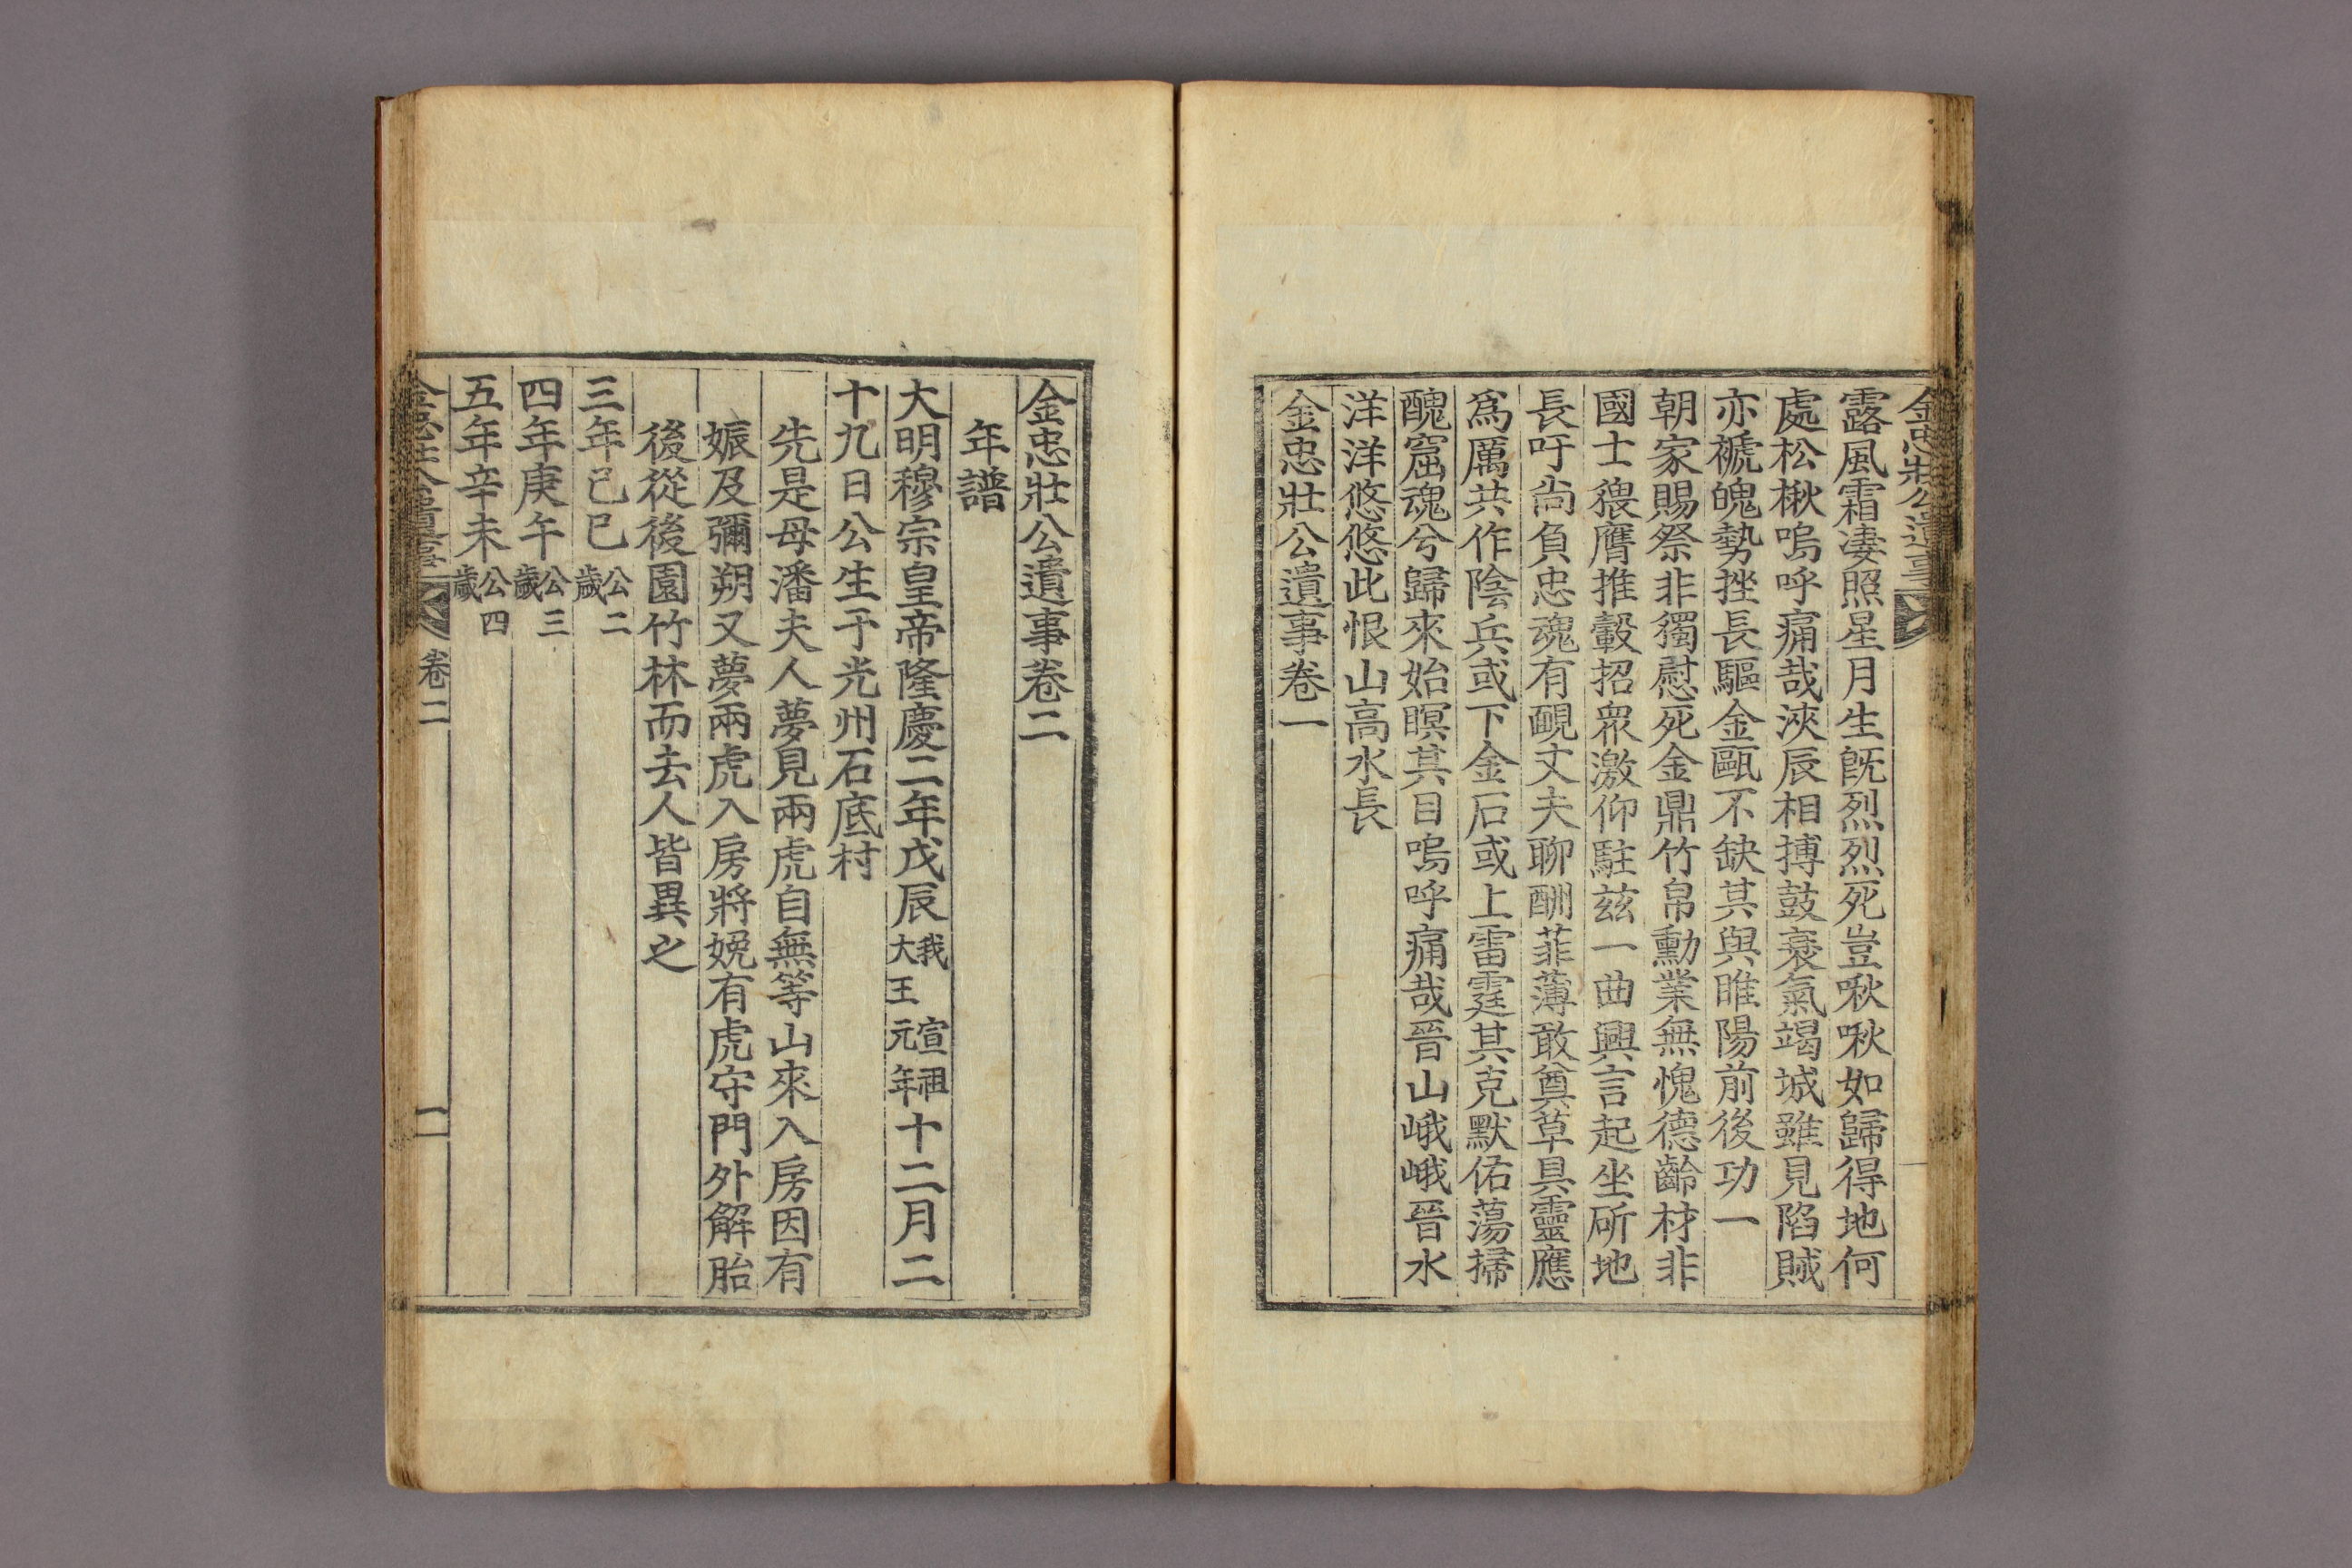 金忠壯公遺事
露風霜凄照星月生旣烈烈死豈啾啾如歸得地何
處松楸嗚呼痛哉浹辰相搏鼓衰氣竭城雖見陷賊
亦褫魄勢挫長驅金甌不缺其與睢陽前後功一
朝家賜祭非獨慰死金鼎竹帛勳業無愧德齡材非
國士猥膺推轂招衆激仰駐玆一曲興言起坐斫地
長吁尙負忠魂有靦丈夫聊酬菲薄敢奠草具靈應
爲厲共作陰兵或下金石或上雷霆其克默佑蕩掃
醜窟魂兮歸來始瞑其目嗚呼痛哉晉山峨峨晉水
洋洋悠悠此恨山高水長
金忠壯公遺事卷一
金忠壯公遺事卷二
年譜
大明穆宗皇帝隆慶二年戊辰我宣祖大王元年十二月二
十九日公生于光州石底村
先是母潘夫人夢見兩虎自無等山來入房因有
娠及彌朔又夢兩虎入房將娩有虎守門外解胎
後從後園竹林而去人皆異之
三年己巳公二歲
四年庚午公三歲
五年辛未公四歲
金忠壯公遺事 卷二 一